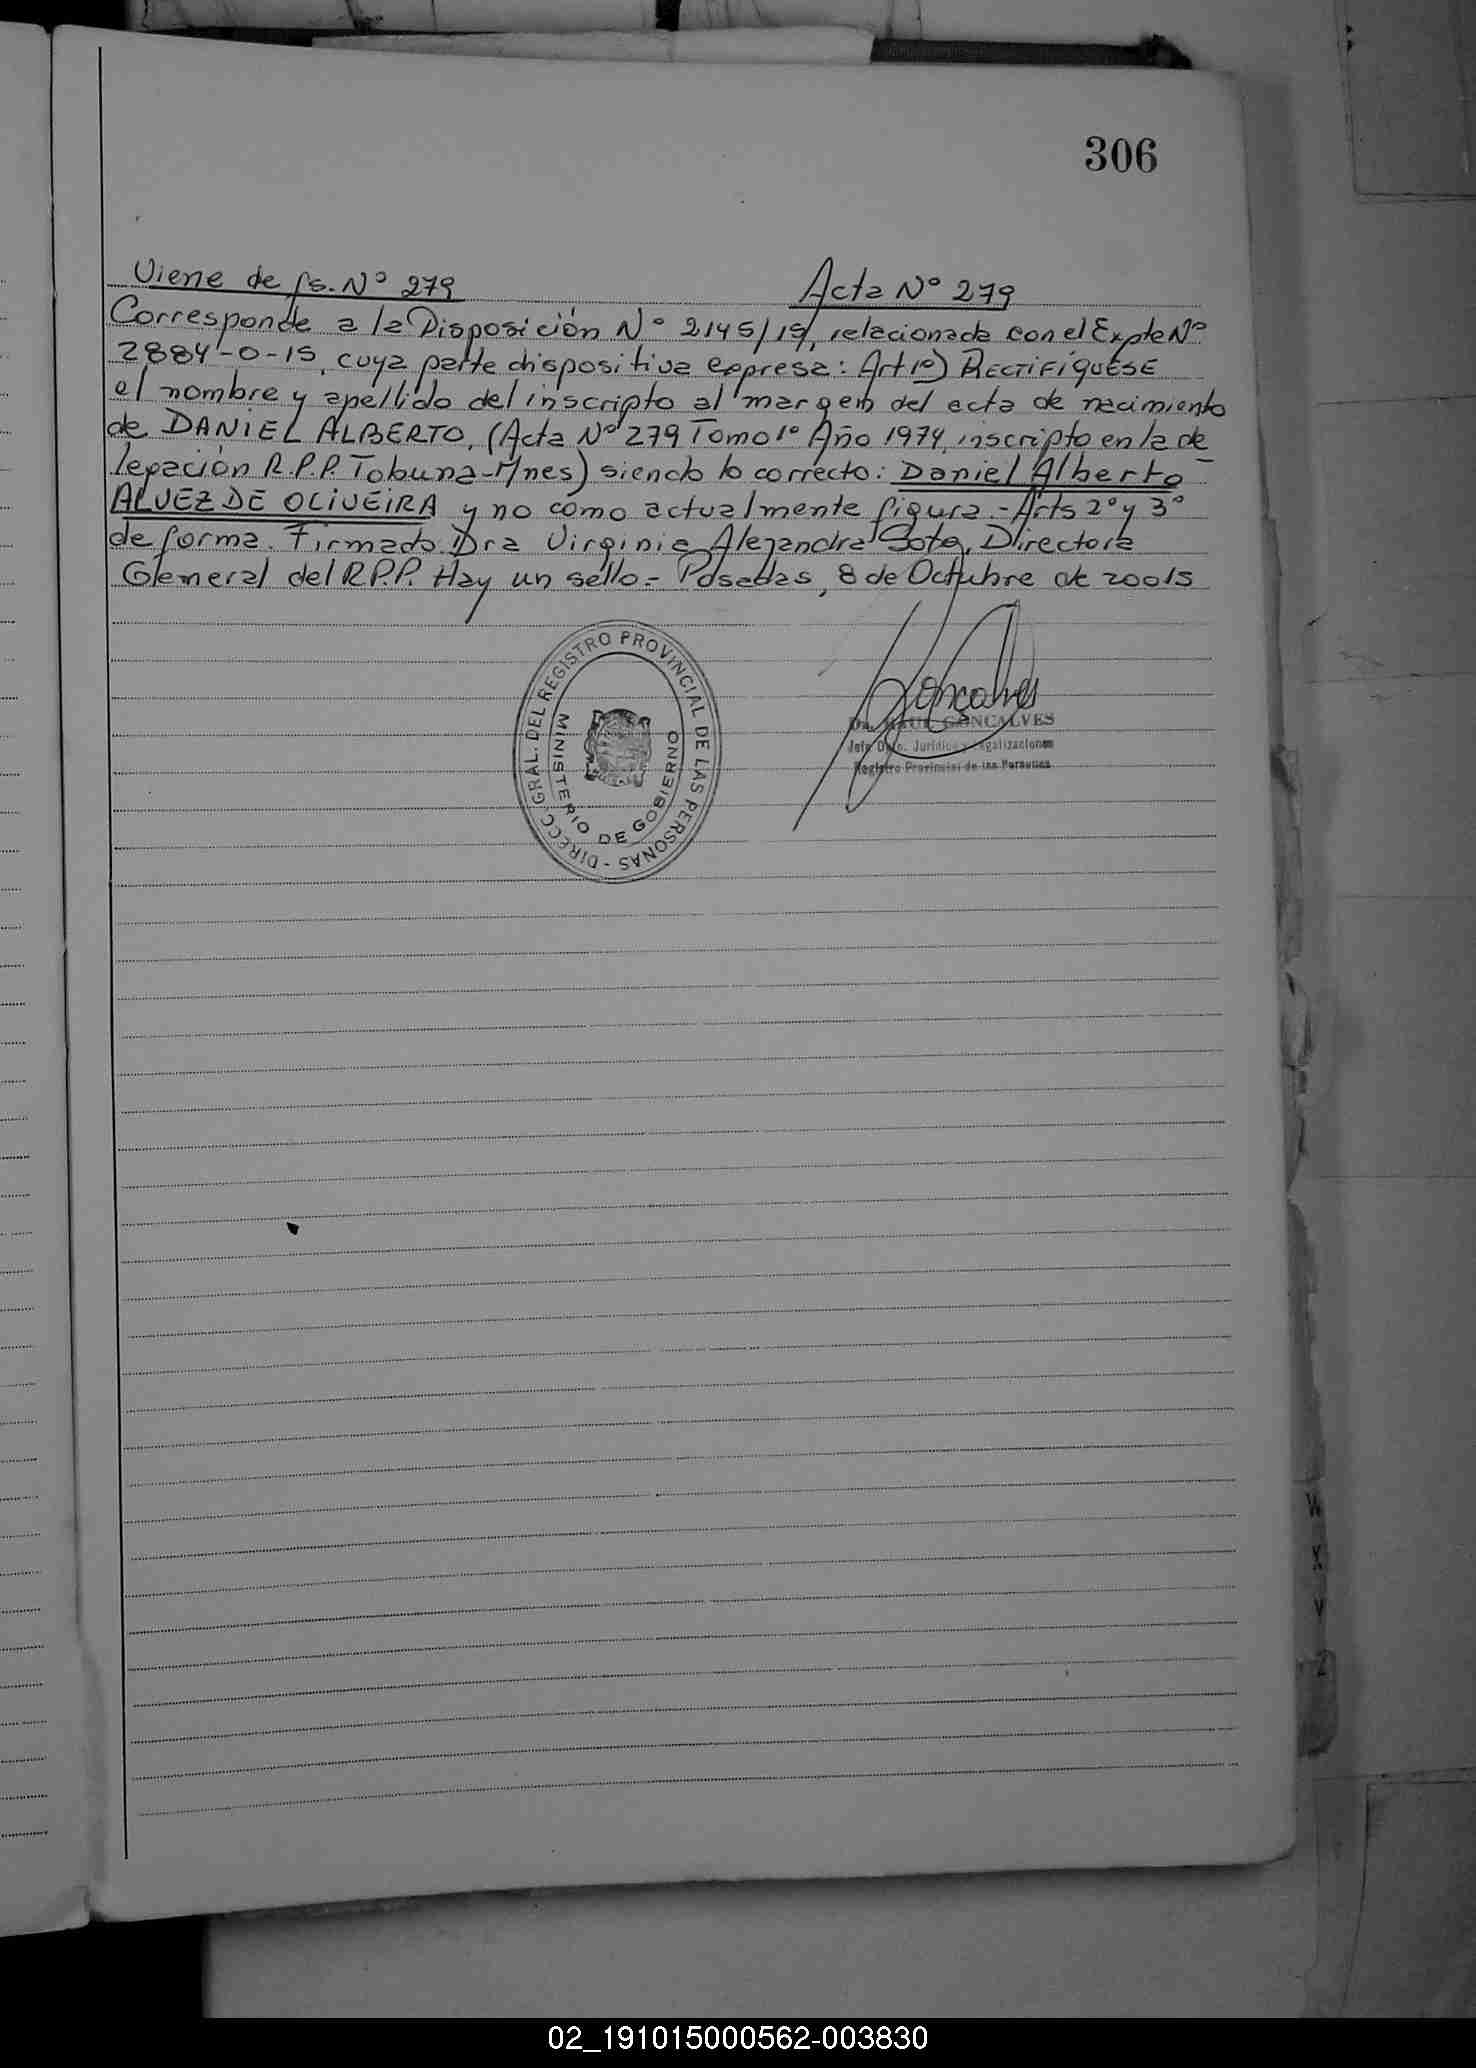 306
Viene de fs. Nº 279 Acta Nº 279
Corresponde a la Disposición Nº 2145/15, relacionada con el Expte Nº
2884-0-15, cuya parte dispositiva expresa: Art 1º) RECTIFÍQUESE
el nombre y apellido del inscripto al margen del acta de nacimiento
de DANIEL ALBERTO, (Acta Nº 279 Tomo 1º Año 1974, inscripto en la de
legación R.P.P. Tobuna-Mnes) siendo lo correcto: Daniel Alberto
ALVEZ DE OLIVEIRA y no como actualmente figura.- Arts 2º y 3º
de forma. Firmado Dra Virginia Alejandra Soto, Directora
General del R.P.P. Hay un sello.- Posadas, 8 de Octubre de 20015
DIRECC. GRAL. DEL REGISTRO PROVINCIAL DE LAS PERSONAS -
MINISTERIO DE GOBIERNO
Goncalves
Dr. RAUL GONCALVES
Jefe Dpto. Jurídico y Legalizaciones
Registro Provincial de las Personas
W
X
Y
Z
02_191015000562-003830